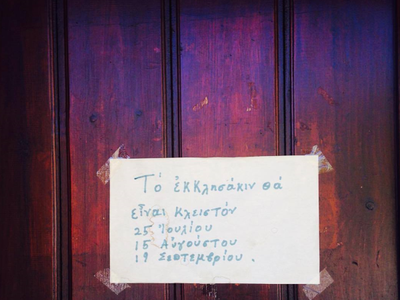 Τό ἐκκλησάκιν θά
εἶναι κλειστόν
25 Ἰουλίου
15 Αὐγούστου
19 Σεπτεμβρίου .